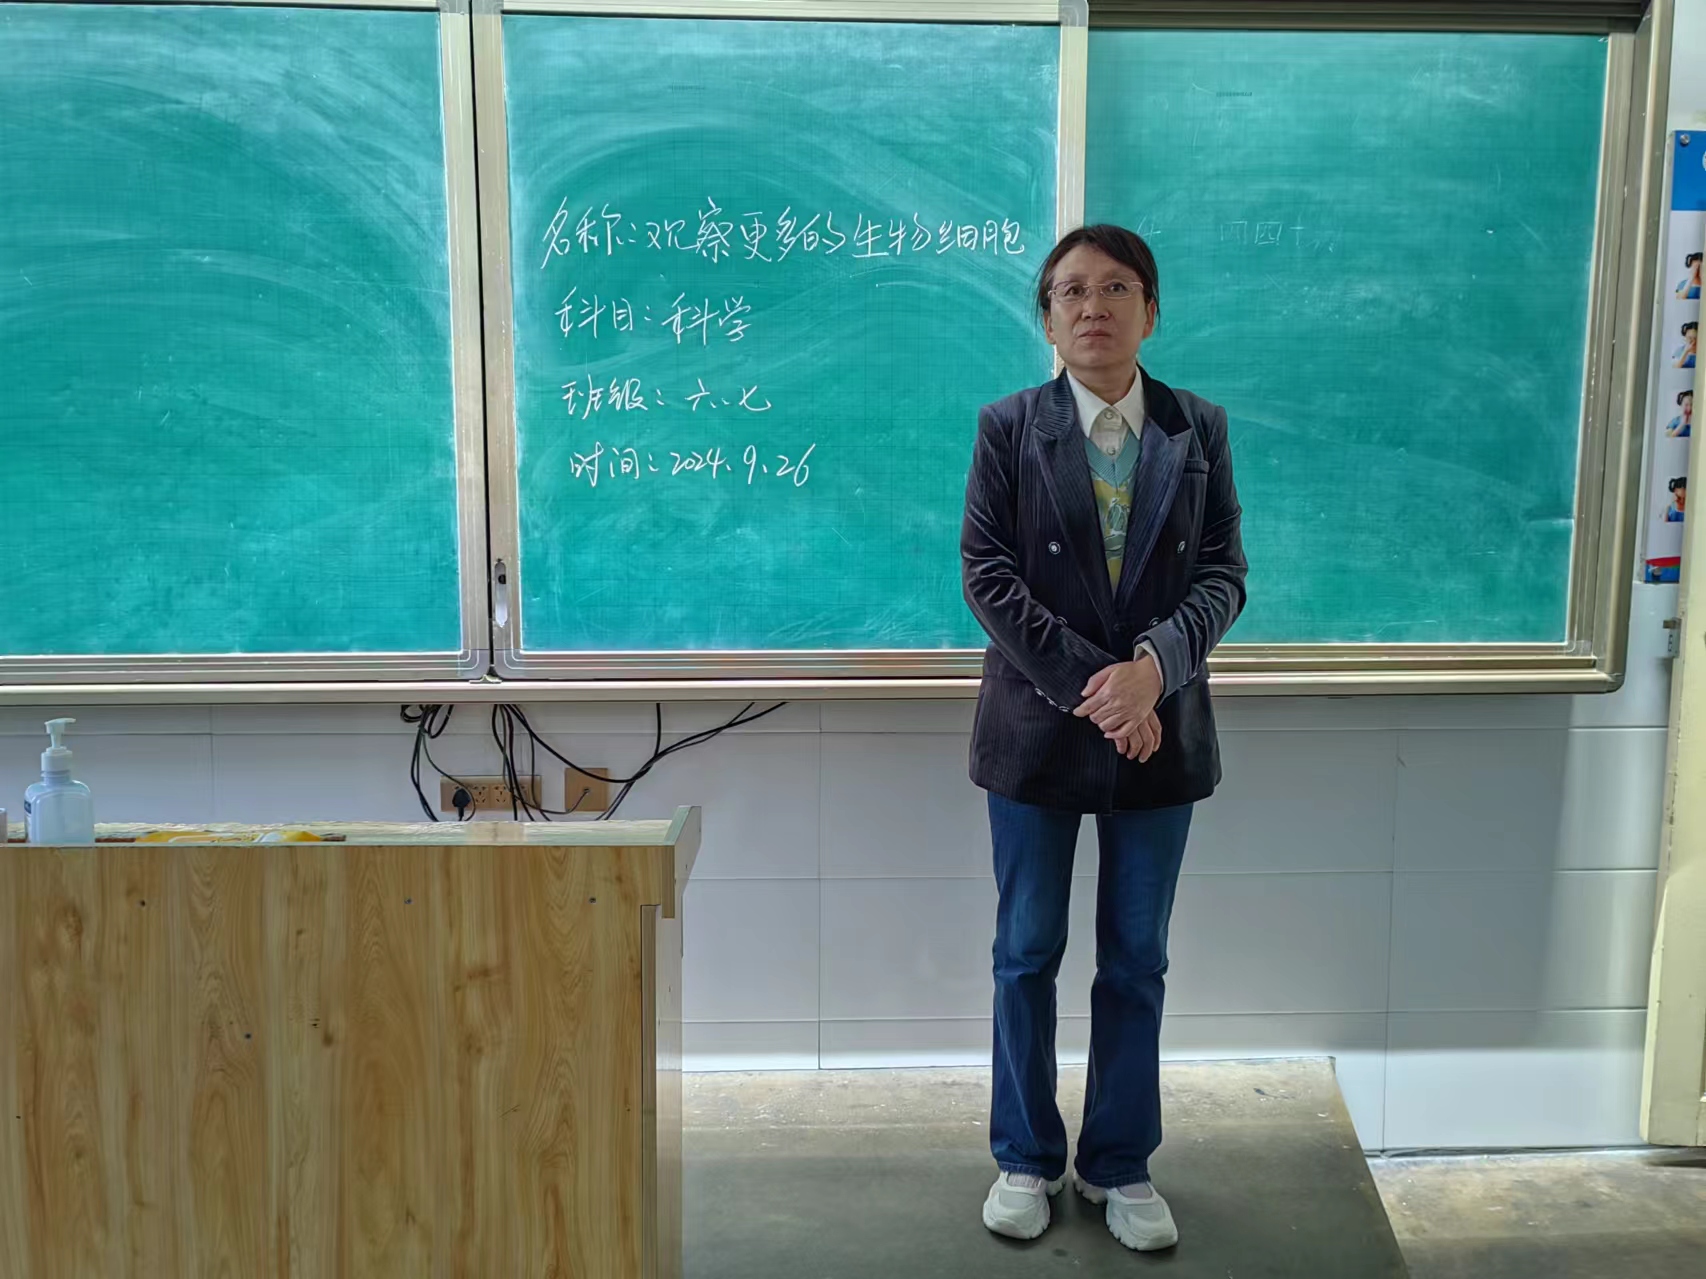 名称:观察更多的生物细胞
科目:科学
班级:六、七
时间:2024.9.26